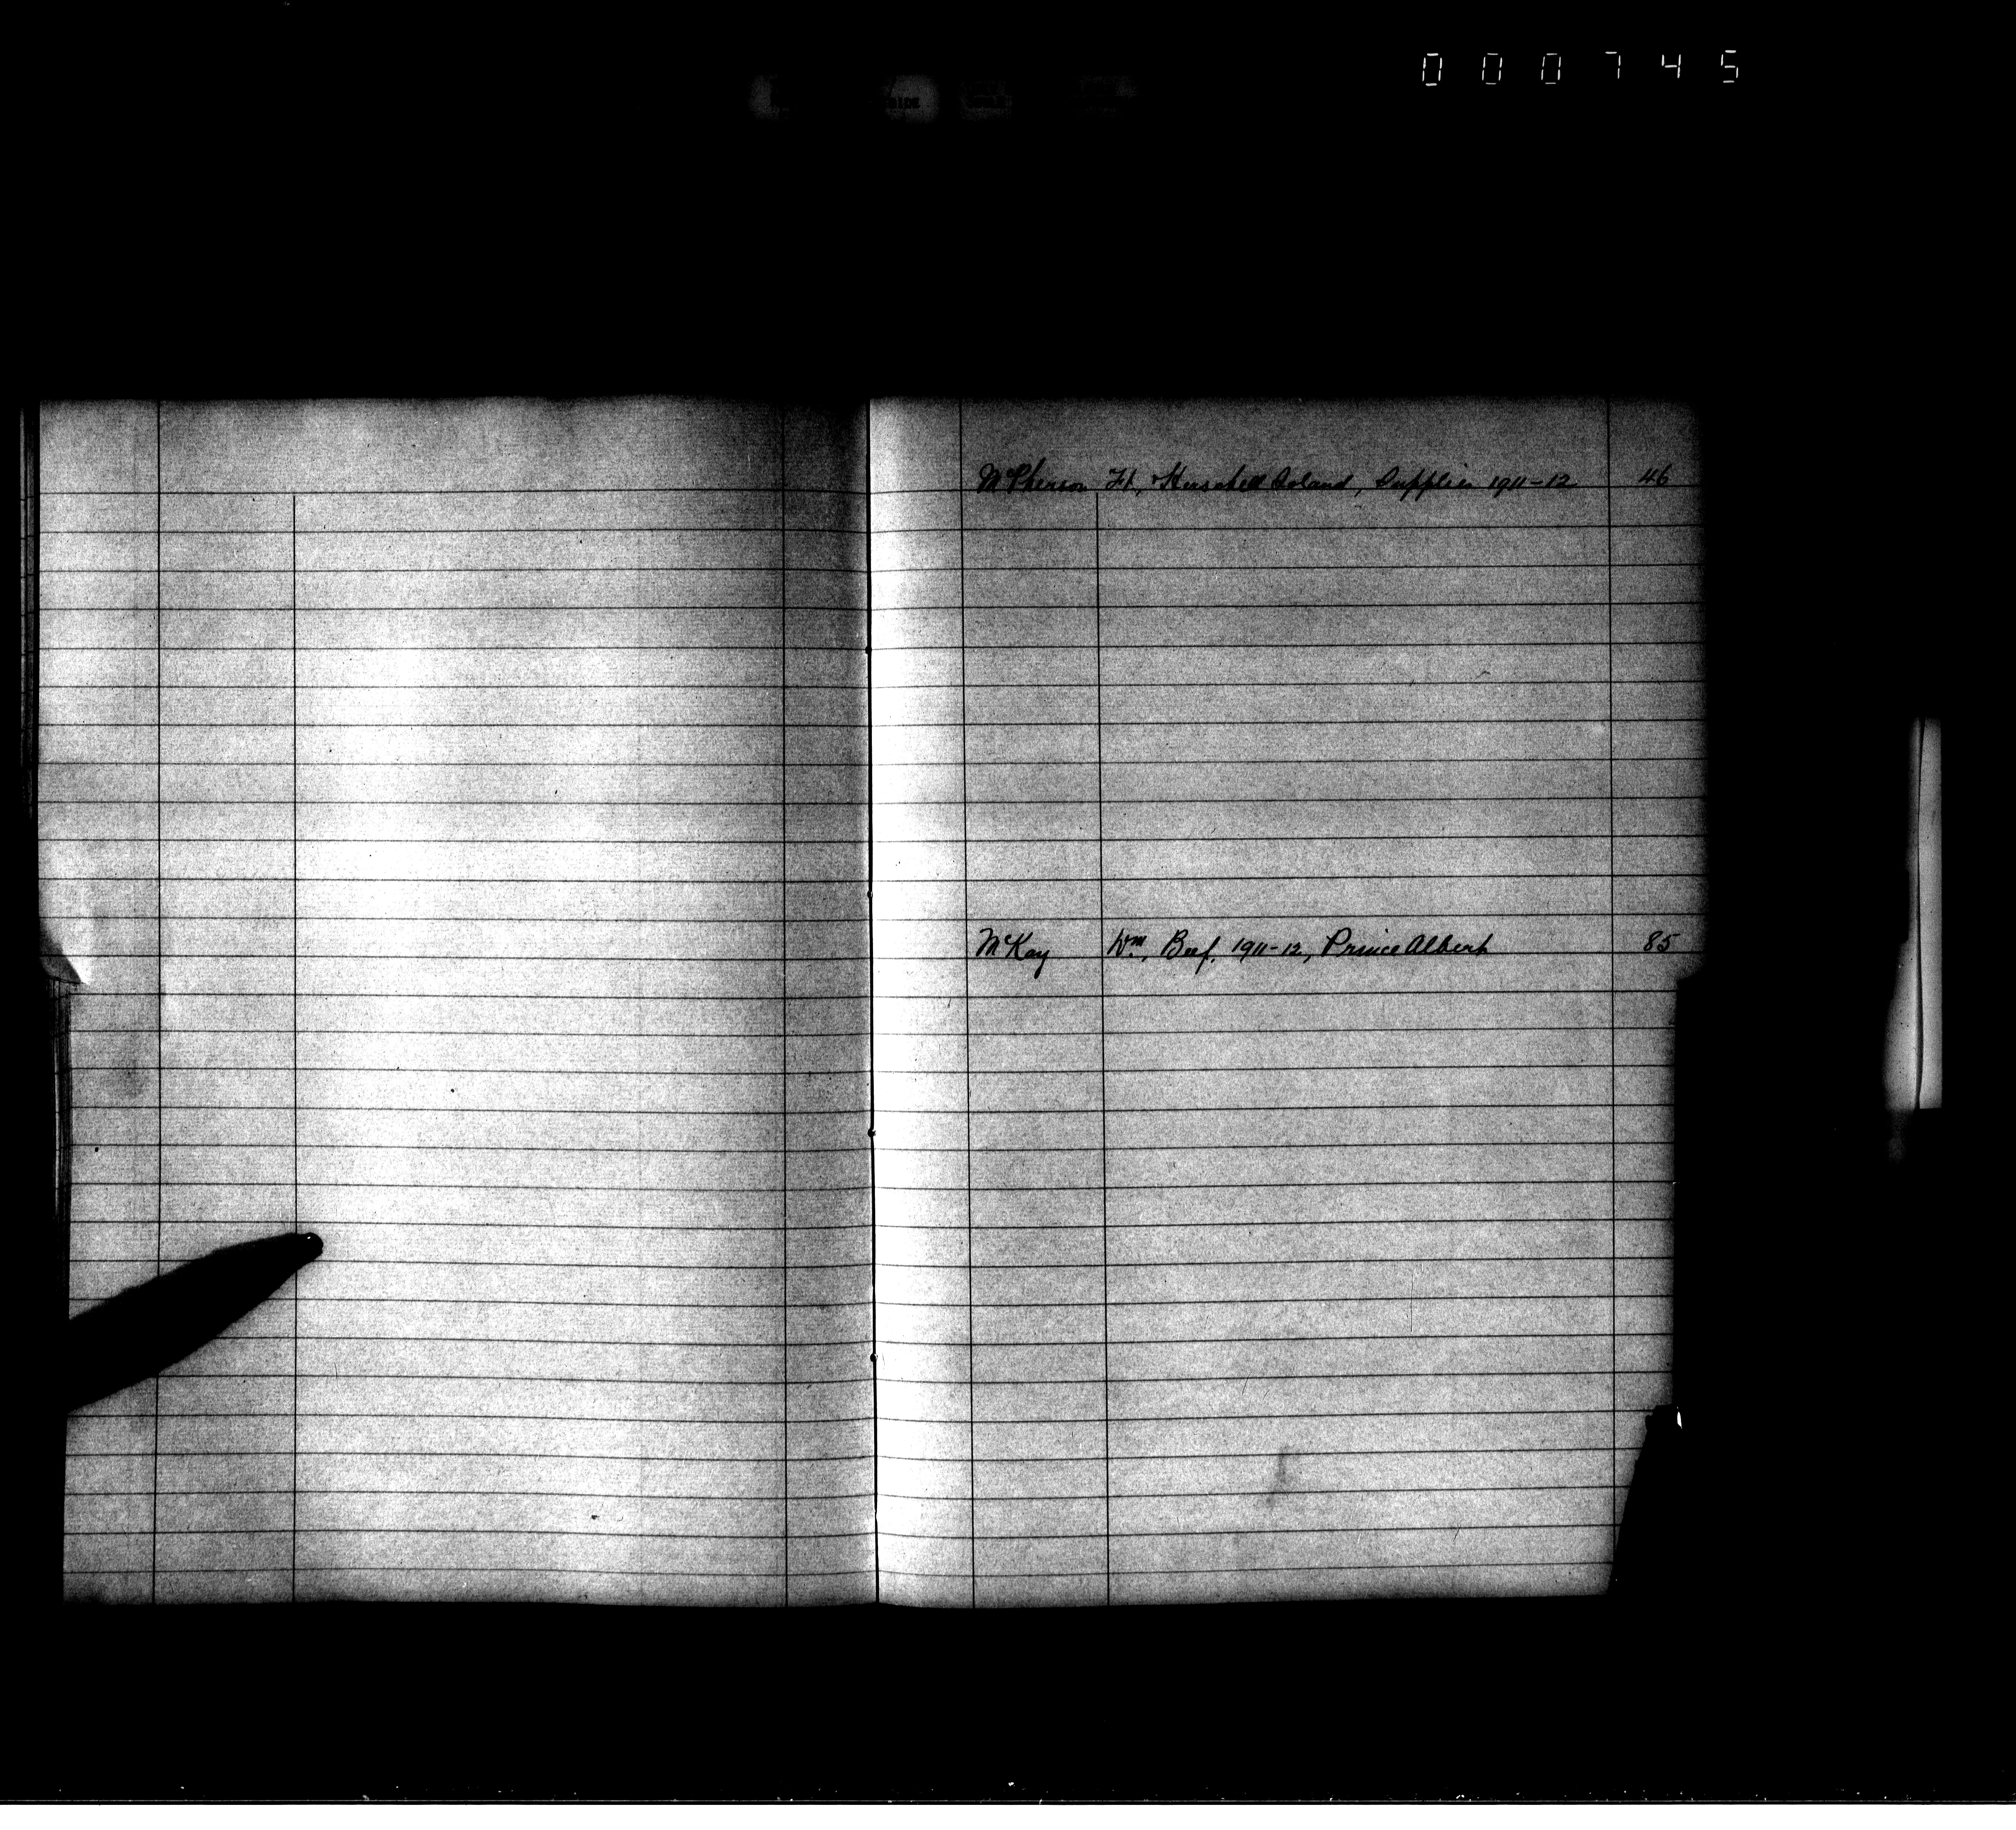 000745
McPherson Ft, Herschell Island, Supplies 1911-12 46
McKay Wm, Beef, 1911-12, Prince Albert 85